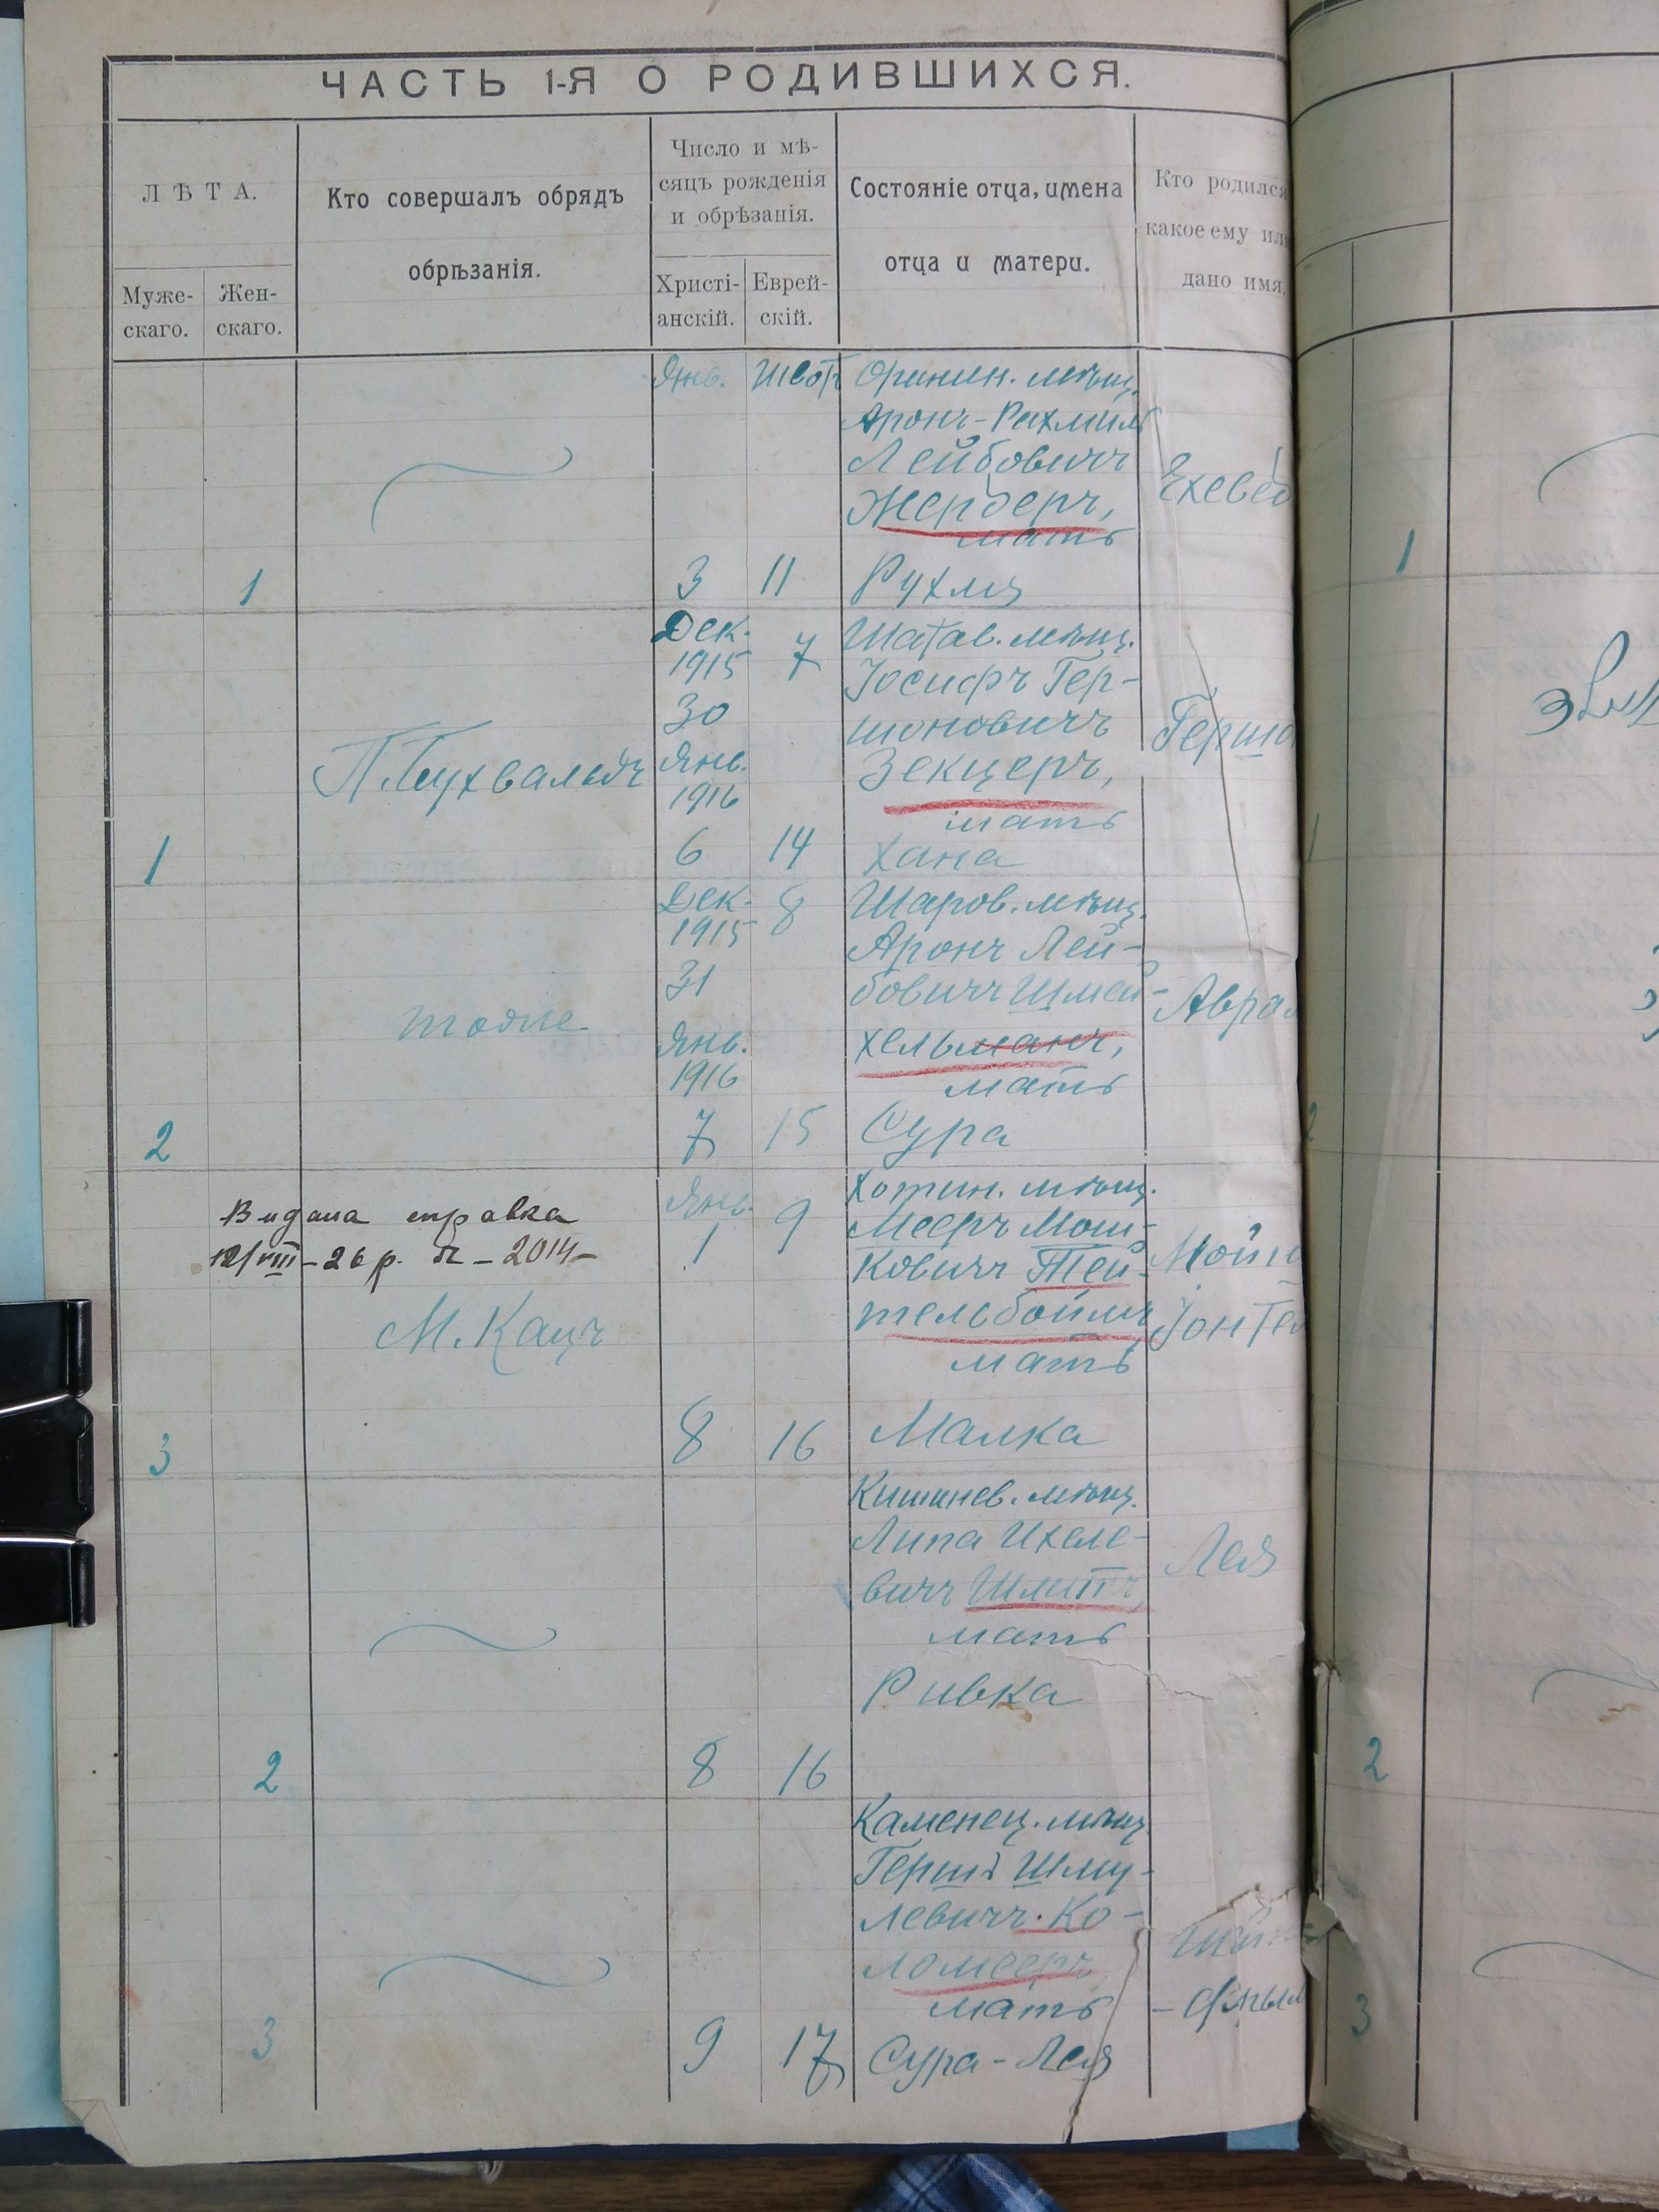 ЧАСТЬ 1-Я О РОДИВШИХСЯ.
ЛѢТА.
Муже-
скаго.
Жен-
скаго.
Кто совершалъ обрядъ
обрѣзанія.
Число и мѣ-
сяцъ рожденія
и обрѣзанія.
Христі-
анскій.
Еврей-
скій.
Состояніе отца, имена
отца и матери.
Кто родился
какое ему или
дано имя.
Янв.
Шватъ
Оринин. мѣщ.
Аронъ-Рахмиль
Лейбовичъ
Жерберъ,
мать
Рухля
1
3
11
1
Дек.
1915
30
7
Янв.
1916
6
14
1
П. Бухвальдъ
Шатав. мѣщ.
Іосифъ Гер-
шоновичъ
Зекцеръ,
мать
Хана
Гершо
Дек.
1915
31
8
Янв.
1916
7
15
2
тоже
Шаров. мѣщ.
Аронъ Лей-
бовичъ Шмей-
хельманъ,
мать
Сура
Аврам
Видана справка
12/VIII-26 р. № - 2014 -
М. Кацъ
Янв.
1
9
8
16
3
Хотин. мѣщ.
Мееръ Мош-
ковичъ Тей-
тельбоймъ
мать
Малка
Кишинев. мѣщ.
Липа Ихеле-
вичъ Шмитъ,
мать
Ривка
Лея
2
8
16
2
Каменец. мѣщ.
Гершъ Шму-
левичъ Ко-
ломееръ
мать
Сура-Лея
3
9
17
3